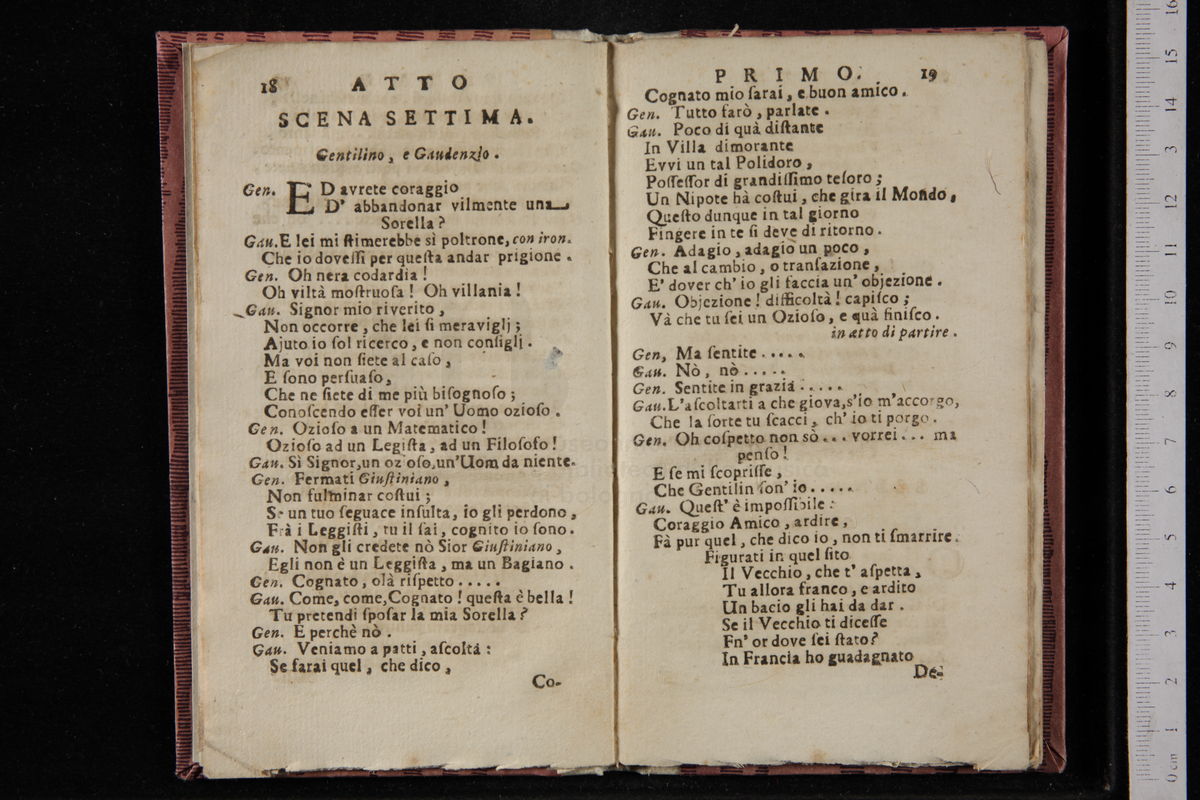 18 ATTO
SCENA SETTIMA.
Gentilino, e Gaudenzio.
Gen. ED avrete coraggio
D' abbandonar vilmente una
Sorella?
Gau. E lei mi ſtimerebbe sì poltrone, con iron.
Che io doveſſi per queſta andar prigione.
Gen. Oh nera codardia!
Oh viltà moſtruoſa! Oh villania!
Gau. Signor mio riverito,
Non occorre, che lei ſi meraviglj;
Ajuto io ſol ricerco, e non conſiglj.
Ma voi non ſiete al caſo,
E ſono perſuaſo,
Che ne ſiete di me più biſognoſo;
Conoſcendo eſſer voi un' Uomo ozioſo.
Gen. Ozioſo a un Matematico!
Ozioſo ad un Legiſta, ad un Filoſofo!
Gau. Sì Signor, un ozioſo, un'Uom da niente.
Gen. Fermati Giuſtiniano,
Non fulminar coſtui;
Se un tuo ſeguace inſulta, io gli perdono,
Frà i Leggiſti, tu il ſai, cognito io ſono.
Gau. Non gli credete nò Sior Giuſtiniano,
Egli non è un Leggiſta, ma un Bagiano.
Gen. Cognato, olà riſpetto.....
Gau. Come, come, Cognato! queſta è bella!
Tu pretendi ſpoſar la mia Sorella?
Gen. E perchè nò.
Gau. Veniamo a patti, aſcolta:
Se farai quel, che dico,
Co-
PRIMO. 19
Cognato mio ſarai, e buon amico.
Gen. Tutto farò, parlate.
Gau. Poco di quà diſtante
In Villa dimorante
Evvi un tal Polidoro,
Poſſeſſor di grandiſſimo teſoro;
Un Nipote hà coſtui, che gira il Mondo,
Queſto dunque in tal giorno
Fingere in te ſi deve di ritorno.
Gen. Adagio, adagio un poco,
Che al cambio, o tranſazione,
E' dover ch' io gli faccia un' objezione.
Gau. Objezione! difficoltà! capiſco;
Và che tu ſei un Ozioſo, e quà finiſco.
in atto di partire.
Gen, Ma ſentite.....
Gau. Nò, nò.....
Gen. Sentite in grazia:....
Gau. L'aſcoltarti a che giova, s'io m'accorgo,
Che la ſorte tu ſcacci, ch' io ti porgo.
Gen. Oh coſpetto non sò... vorrei... ma
penſo!
E ſe mi ſcopriſſe,
Che Gentilin ſon' io.....
Gau. Queſt' è impoſſibile:
Coraggio Amico, ardire,
Fà pur quel, che dico io, non ti ſmarrire.
Figurati in quel ſito
Il Vecchio, che t' aſpetta,
Tu allora franco, e ardito
Un bacio gli hai da dar.
Se il Vecchio ti diceſſe
Fn' or dove ſei ſtato?
In Francia ho guadagnato
De-